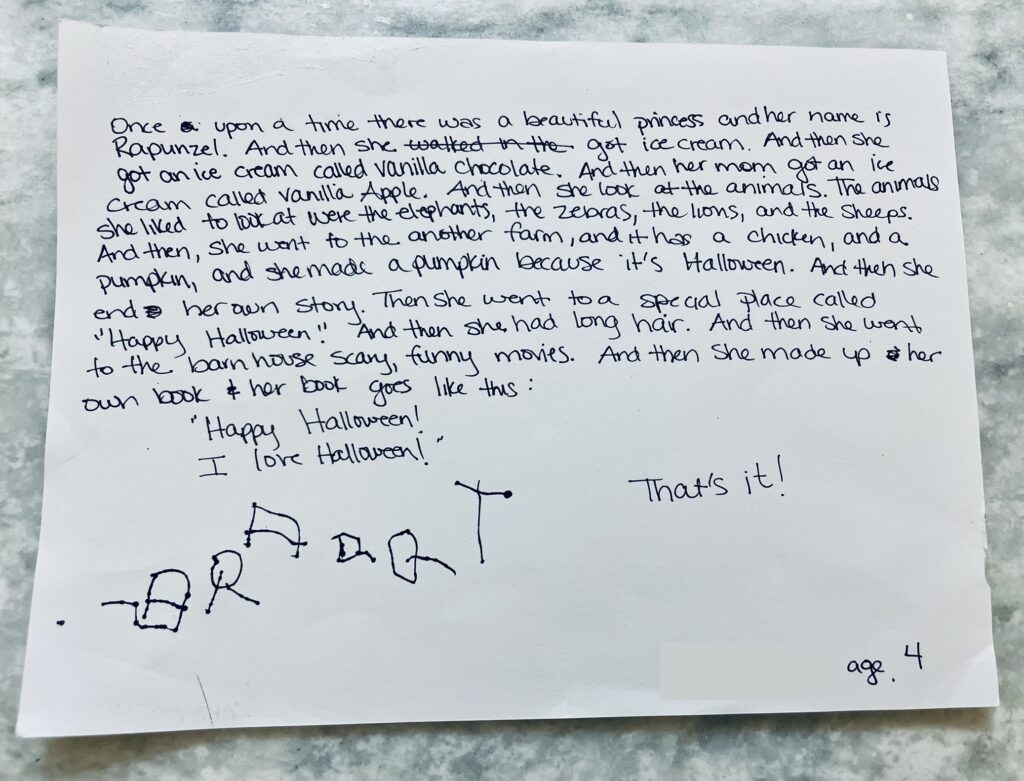 Once upon a time there was a beautiful princess and her name is
Rapunzel. And then she walked in the got ice cream. And then she
got an ice cream called vanilla chocolate. And then her mom got an ice
cream called vanilla Apple. And then she look at the animals. The animals
she liked to look at were the elephants, the zebras, the lions, and the sheeps.
And then, she went to the another farm, and it has a chicken, and a
pumpkin, and she made a pumpkin because it's Halloween. And then she
end her own story. Then she went to a special place called
"Happy Halloween!" And then she had long hair. And then she went
to the barn house scary, funny movies. And then she made up her
own book & her book goes like this:
"Happy Halloween!
I love Halloween!"
That's it!
age 4